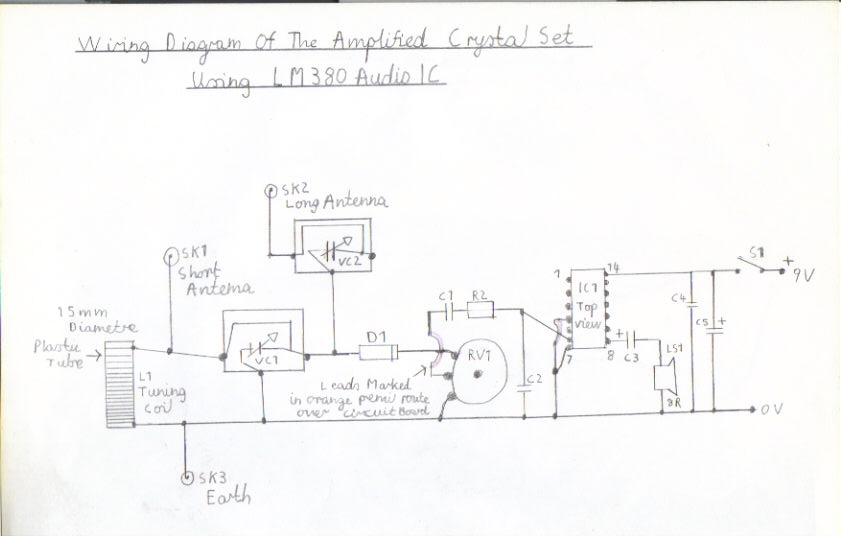 Wiring Diagram Of The Amplified Crystal Set
Using LM380 Audio IC
SK2
Long Antenna
VC2
SK1
Short
Antenna
15mm
Diametre
Plastic
Tube
L1
Tuning
Coil
VC1
D1
C1
R2
RV1
Leads Marked
in orange
route
over circuit Board
C2
1
14
IC1
Top
view
7
8
+
C3
LS1
8R
C4
C5
+
S1
+
9V
0V
SK3
Earth